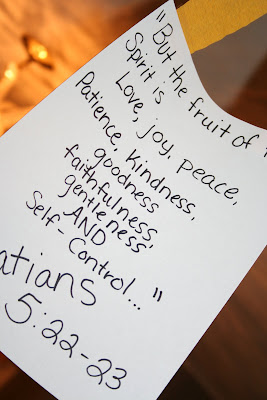 "But the fruit of
Spirit is
Love, joy, peace,
Patience, kindness,
goodness
faithfulness,
gentleness,
AND
Self-Control..."
atians
5:22-23